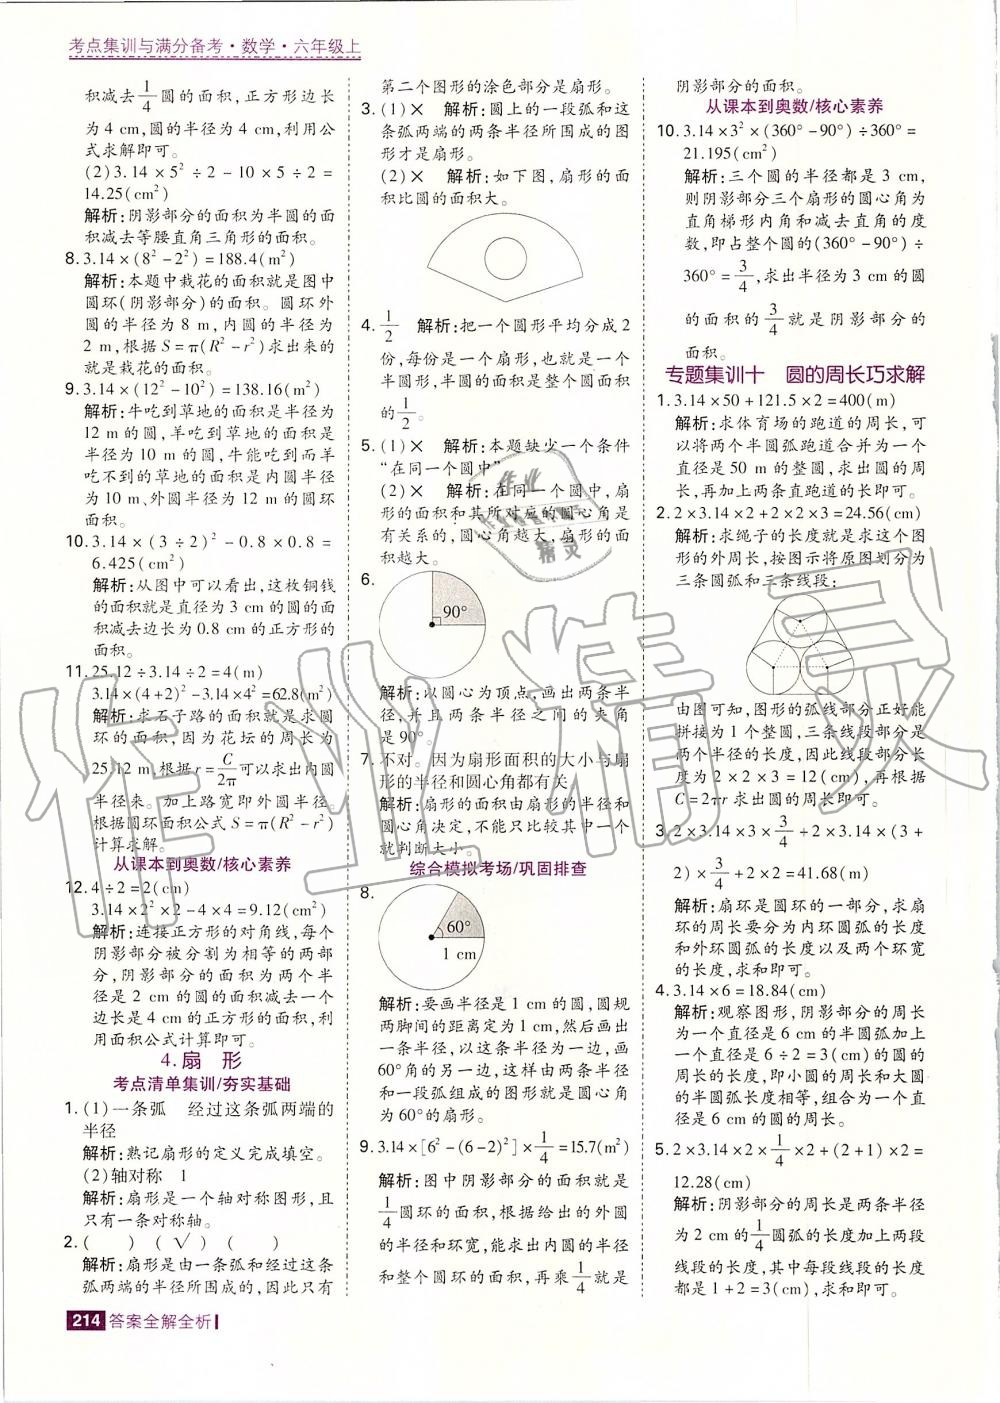 考点集训与满分备考·数学·六年级上
积减去1/4圆的面积,正方形边长
为4 cm,圆的半径为4 cm,利用公
式求解即可。
(2)3.14×5²÷2-10×5÷2=
14.25(cm²)
解析:阴影部分的面积为半圆的面
积减去等腰直角三角形的面积。
8.3.14×(8²-2²)=188.4(m²)
解析:本题中栽花的面积就是图中
圆环(阴影部分)的面积。圆环外
圆的半径为8 m,内圆的半径为
2 m,根据S=π(R²-r²)求出来的
就是栽花的面积。
9.3.14×(12²-10²)=138.16(m²)
解析:牛吃到草地的面积是半径为
12 m的圆,羊吃到草地的面积是
半径为10 m的圆,牛能吃到而羊
吃不到的草地的面积是内圆半径
为10 m、外圆半径为12 m的圆环
面积。
10.3.14×(3÷2)²-0.8×0.8=
6.425(cm²)
解析:从图中可以看出,这枚铜钱
的面积就是直径为3 cm的圆的面
积减去边长为0.8 cm的正方形的
面积。
11.25.12÷3.14÷2=4(m)
3.14×(4+2)²-3.14×4²=62.8(m²)
解析:求石子路的面积就是求圆
环的面积,因为花坛的周长为
25.12 m,根据r=C/2π可以求出内圆
半径来。加上路宽即外圆半径。
根据圆环面积公式S=π(R²-r²)
计算求解。
从课本到奥数/核心素养
12.4÷2=2(cm)
3.14×2²×2-4×4=9.12(cm²)
解析:连接正方形的对角线,每个
阴影部分被分割为相等的两部
分,阴影部分的面积为两个半
径是2 cm的圆的面积减去一个
边长是4 cm的正方形的面积,利
用面积公式计算即可。
4.扇 形
考点清单集训/夯实基础
1.(1)一条弧 经过这条弧两端的
半径
解析:熟记扇形的定义完成填空。
(2)轴对称 1
解析:扇形是一个轴对称图形,且
只有一条对称轴。
2.( ) (√) ( )
解析:扇形是由一条弧和经过这条
弧两端的半径所围成的,因此只有
第二个图形的涂色部分是扇形。
3.(1)× 解析:圆上的一段弧和这
条弧两端的两条半径所围成的图
形才是扇形。
(2)× 解析:如下图,扇形的面
积比圆的面积大。
4.1/2 解析:把一个圆形平均分成2
份,每份是一个扇形,也就是一个
半圆形,半圆的面积是整个圆面积
的1/2。
5.(1)× 解析:本题缺少一个条件
“在同一个圆中”。
(2)× 解析:在同一个圆中,扇
形的面积和其所对应的圆心角是
有关系的,圆心角越大,扇形的面
积越大。
6.
90°
解析:以圆心为顶点,画出两条半
径,并且两条半径之间的夹角
是90°。
7.不对。因为扇形面积的大小与扇
形的半径和圆心角都有关。
解析:扇形的面积由扇形的半径和
圆心角决定,不能只比较其中一个
就判断大小。
综合模拟考场/巩固排查
8.
60°
1 cm
解析:要画半径是1 cm的圆,圆规
两脚间的距离定为1 cm,然后画出
一条半径,以这条半径为一边,画
60°角的另一边,这样由两条半径
和一段弧组成的图形就是圆心角
为60°的扇形。
9.3.14×[6²-(6-2)²]×1/4=15.7(m²)
解析:图中阴影部分的面积就是
1/4圆环的面积,根据给出的外圆
的半径和环宽,能求出内圆的半径
和整个圆环的面积,再乘1/4就是
阴影部分的面积。
从课本到奥数/核心素养
10.3.14×3²×(360°-90°)÷360°=
21.195(cm²)
解析:三个圆的半径都是3 cm,
则阴影部分三个扇形的圆心角为
直角梯形内角和减去直角的度
数,即占整个圆的(360°-90°)÷
360°=3/4,求出半径为3 cm的圆
的面积的3/4就是阴影部分的
面积。
专题集训十 圆的周长巧求解
1.3.14×50+121.5×2=400(m)
解析:求体育场的跑道的周长,可
以将两个半圆弧跑道合并为一个
直径是50 m的整圆,求出圆的周
长,再加上两条直跑道的长即可。
2.2×3.14×2+2×2×3=24.56(cm)
解析:求绳子的长度就是求这个图
形的外周长,按图示将原图划分为
三条圆弧和三条线段:
由图可知,图形的弧线部分正好能
拼接为1个整圆,三条线段部分是
两个半径的长度,因此线段部分长
度为2×2×3=12(cm),再根据
C=2πr求出圆的周长即可。
3.2×3.14×3×3/4+2×3.14×(3+
2)×3/4+2×2=41.68(m)
解析:扇环是圆环的一部分,求扇
环的周长要分为内环圆弧的长度
和外环圆弧的长度以及两个环宽
的长度,求和即可。
4.3.14×6=18.84(cm)
解析:观察图形,阴影部分的周长
为一个直径是6 cm的半圆弧加上
一个直径是6÷2=3(cm)的圆的
周长的长度,即小圆的周长和大圆
的半圆弧长度相等,组合为一个直
径是6 cm的圆的周长。
5.2×3.14×2×1/4+(2+1)×2=
12.28(cm)
解析:阴影部分的周长是两条半径
为2 cm的1/4圆弧的长度加上两段
线段的长度,其中每段线段的长度
都是1+2=3(cm),求和即可。
214 答案全解全析
作业精灵